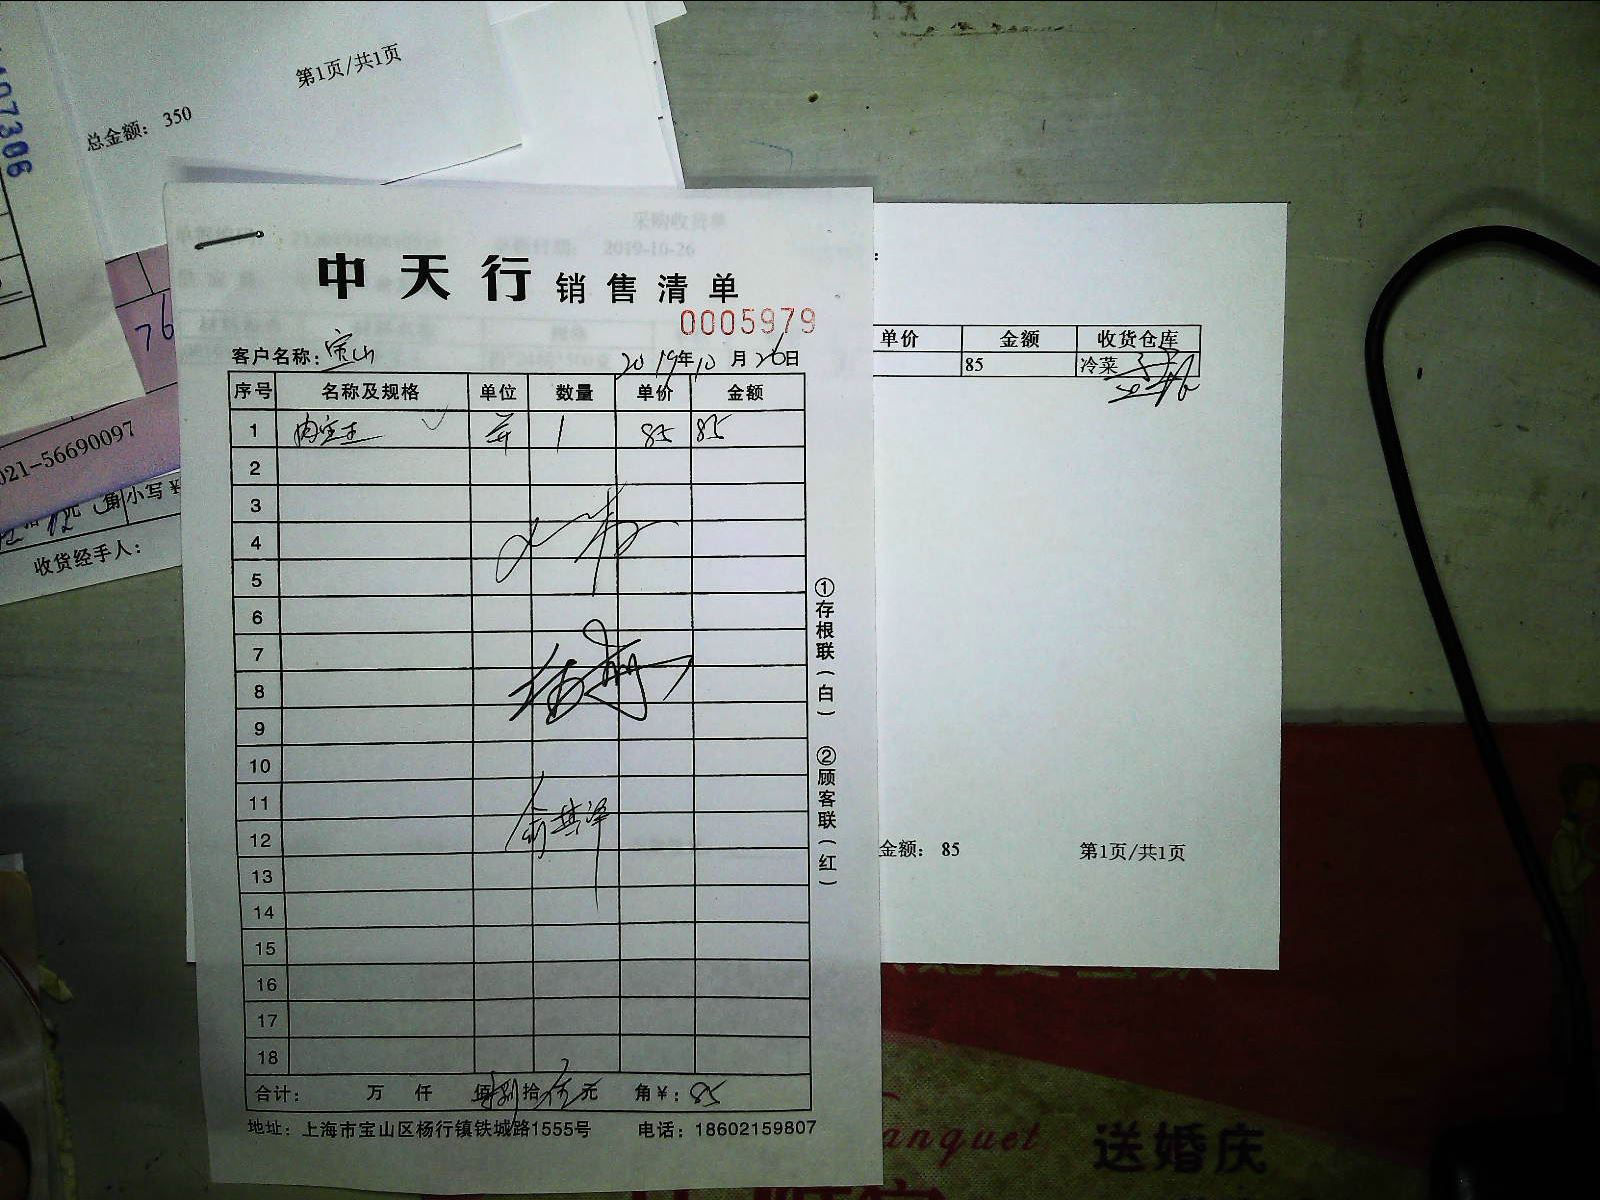 07306
第1页/共1页
总金额： 350
采购收货单
2019-10-26
中天行 销售清单
0005979
客户名称：宝山
2019年10月26日
序号 名称及规格 单位 数量 单价 金额
1 肉宝王 1 85 85
2
3
4
5
6
7
8
9
10
11
12
13
14
15
16
17
18
合计： 万 仟 佰捌拾伍元 角￥：85
地址：上海市宝山区杨行镇铁城路1555号 电话：18602159807
①存根联（白） ②顾客联（红）
单价 金额 收货仓库
85 冷菜
金额： 85
第1页/共1页
76
021-56690097
元 角 小写￥
收货经手人：
anquet
送婚庆